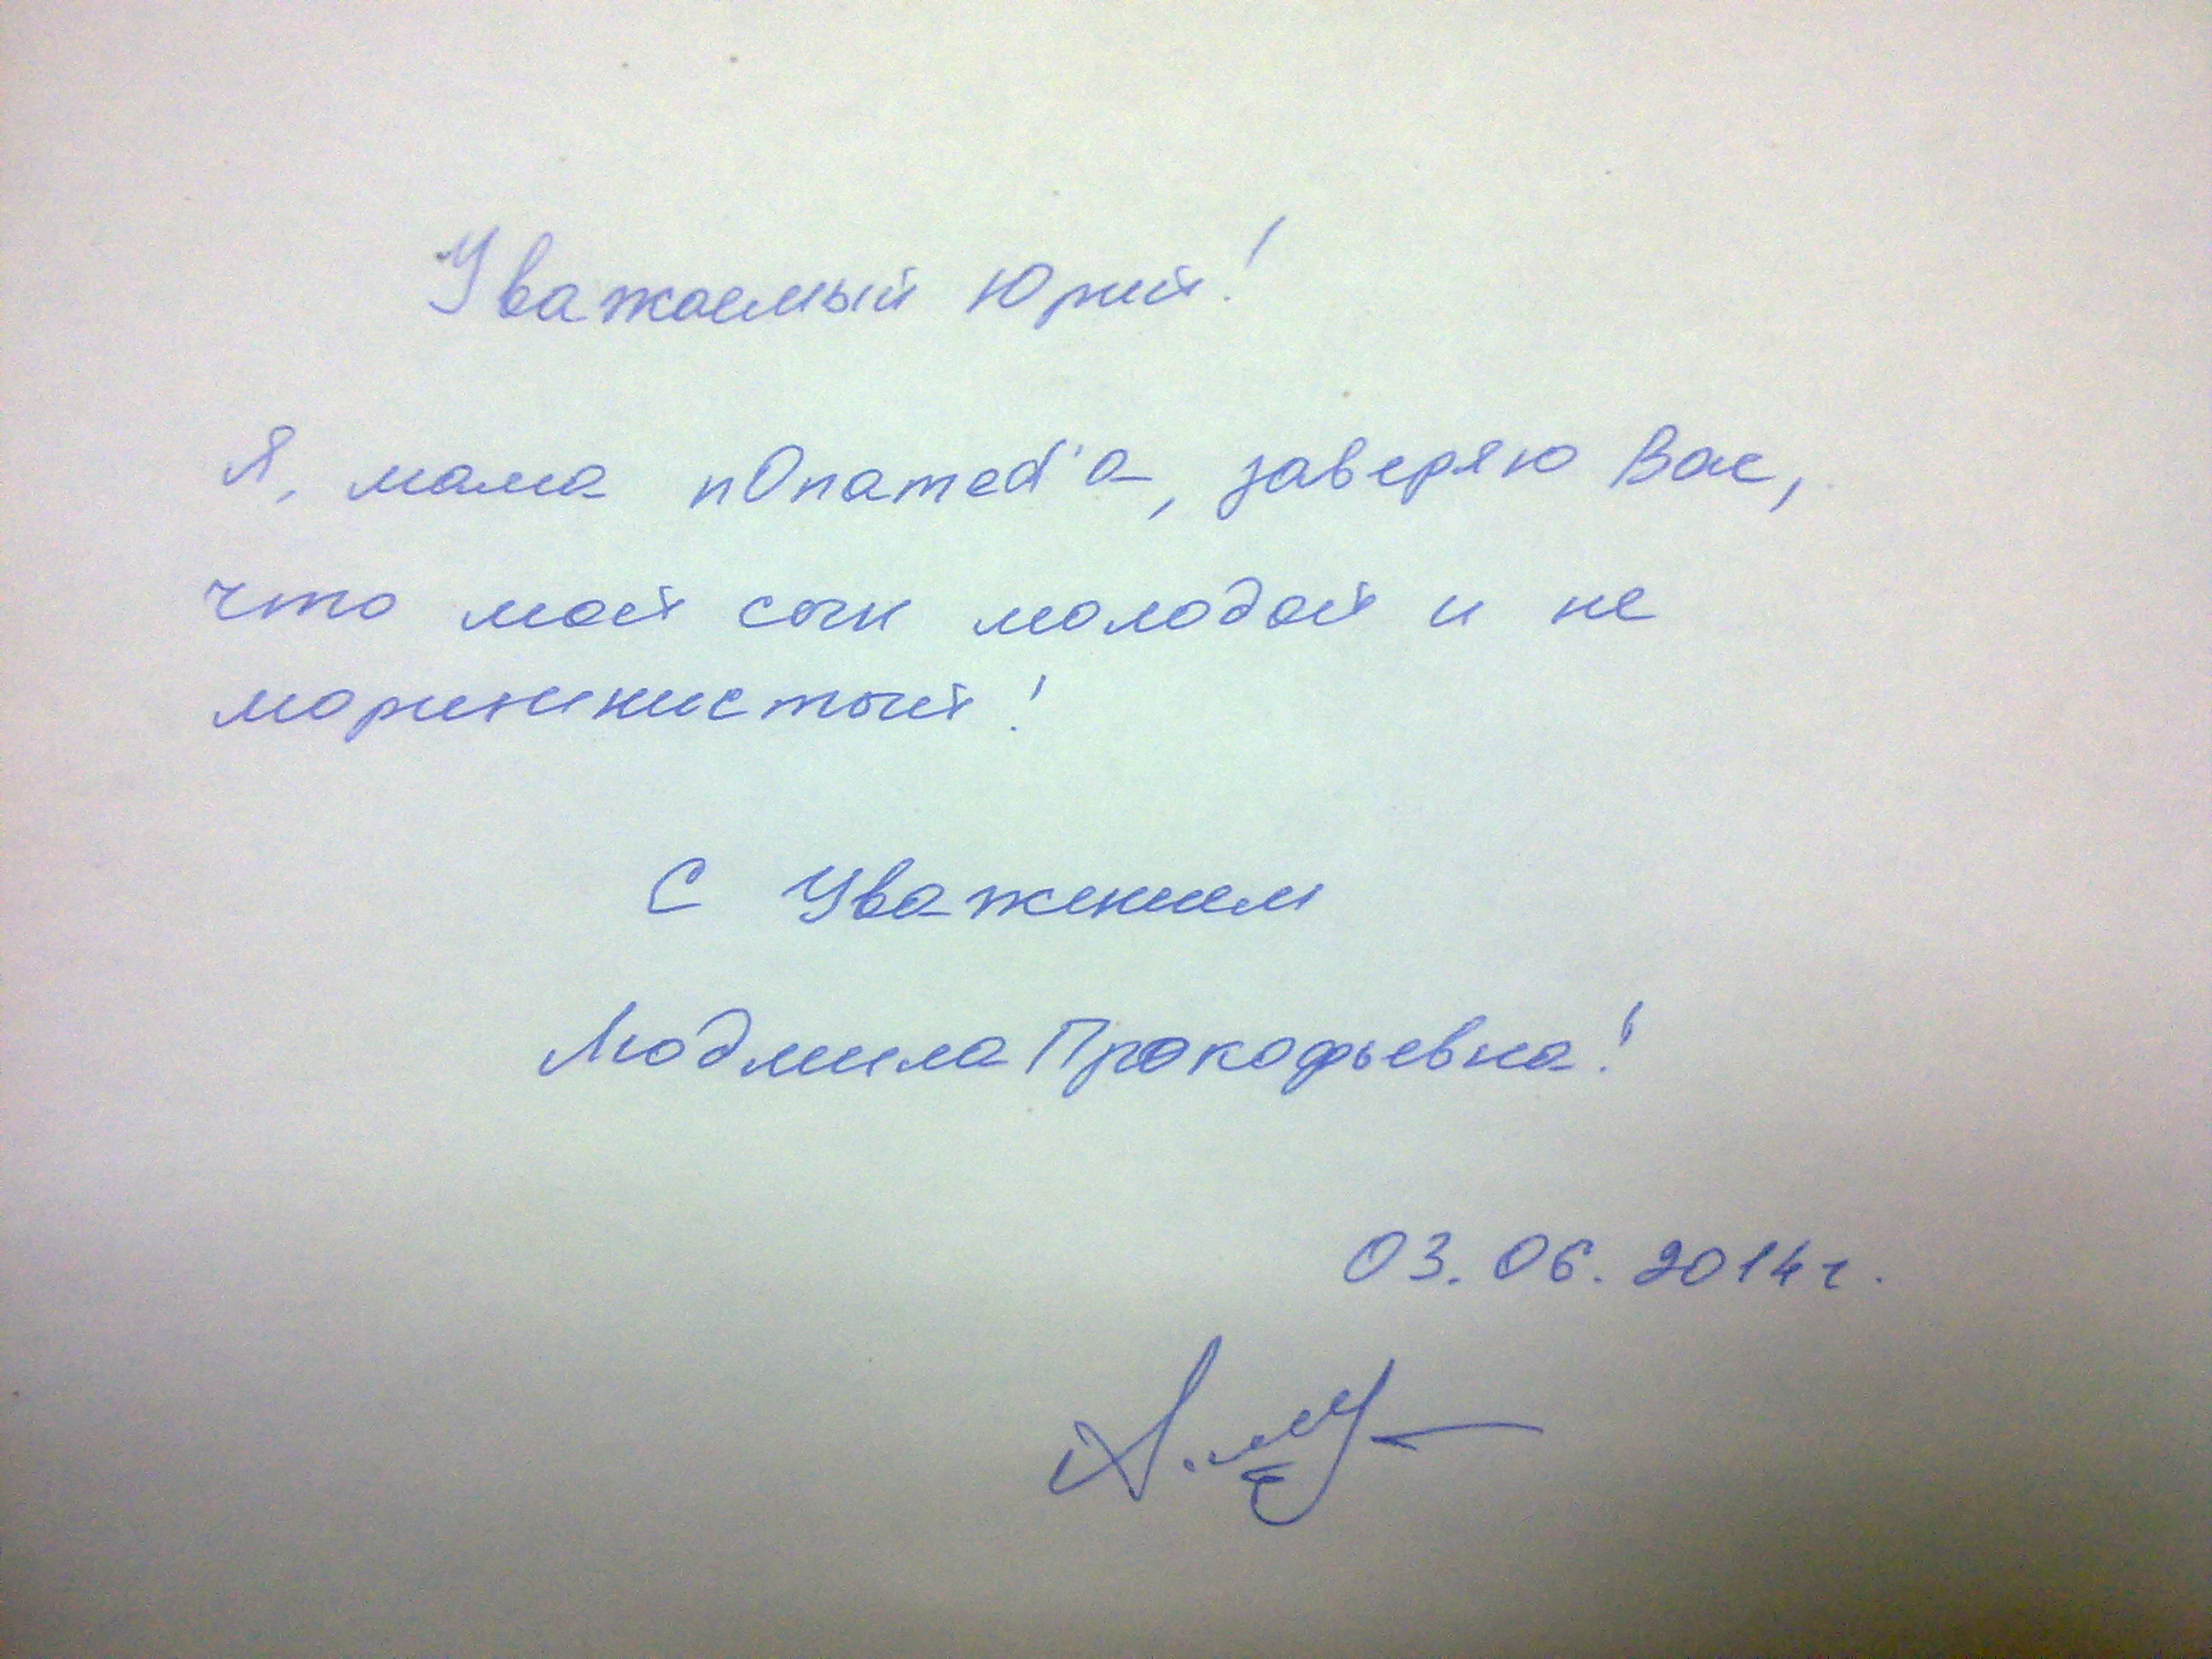 Уважаемый Юрий!
Я, мама n0named'а, заверяю Вас,
что мой сын молодой и не
морщинистый!
С Уважением
Людмила Прокофьевна!
03.06.2014г.